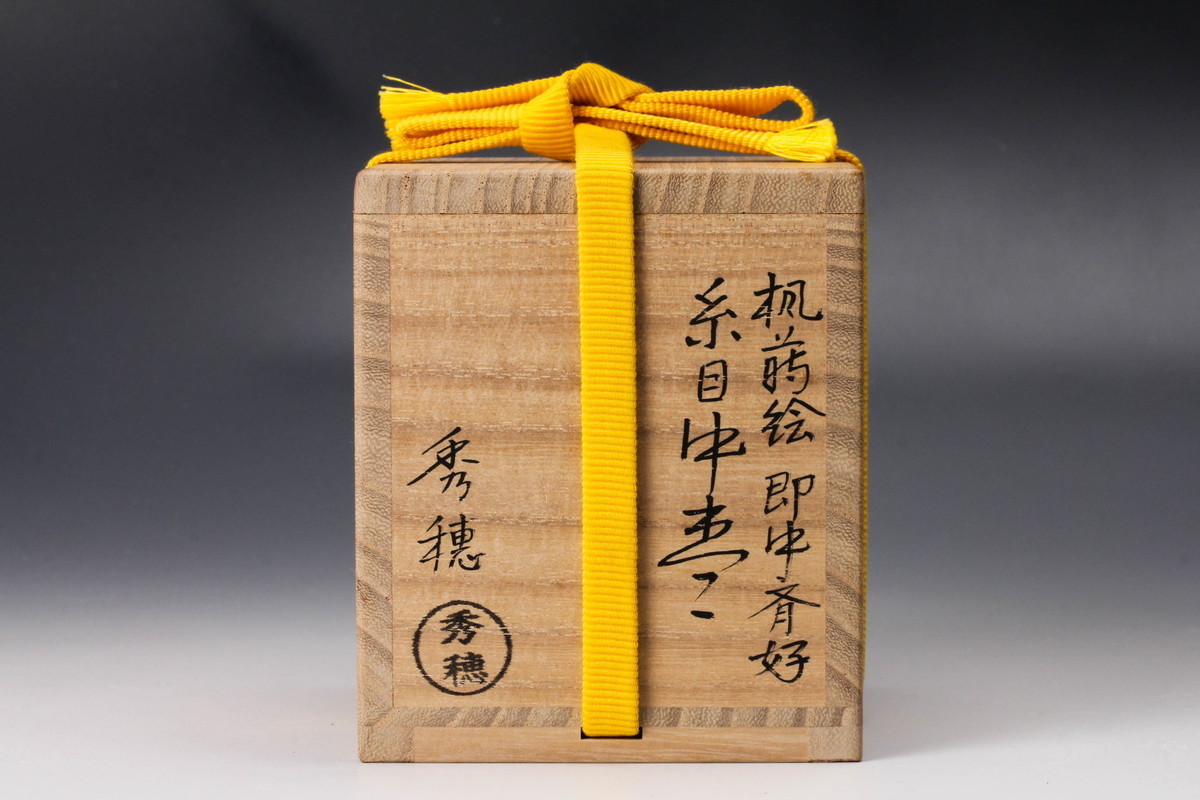 楓蒔絵 即中斉好
糸目中棗
秀穂
秀穂